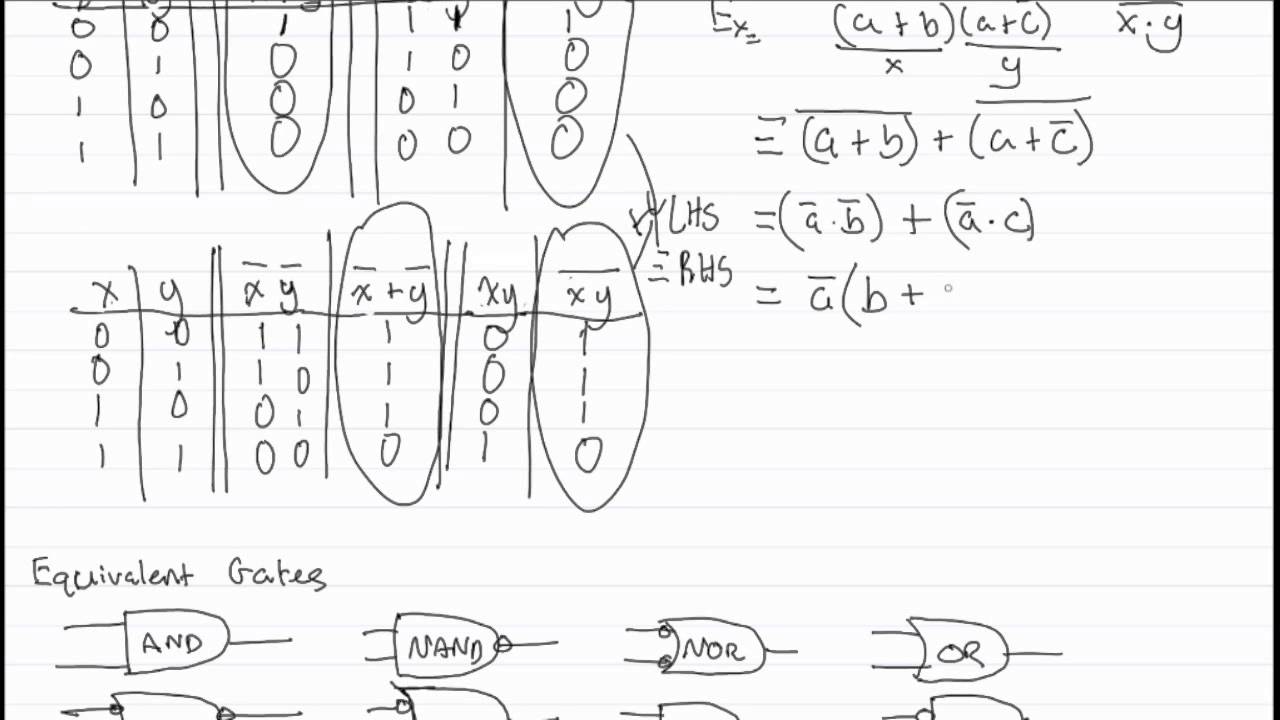 0 0 1 1 1 1
0 1 0 1 0 0
1 0 0 0 1 0
1 1 0 0 0 0
Ex= (a + b)(a+c̅) x̅·̅y̅
x y
≡ (̅a̅ ̅+̅ ̅b̅)̅ + (̅a̅ ̅+̅ ̅c̅)̅
LHS = (a̅.b̅) + (a̅.c)
≡ RHS = a̅(b +
x y x̅ y̅ x̅ + y̅ xy x̅y̅
0 0 1 1 1 0 1
0 1 1 0 1 0 1
1 0 0 1 1 0 1
1 1 0 0 0 1 0
Equivalent Gates
AND NAND NOR OR